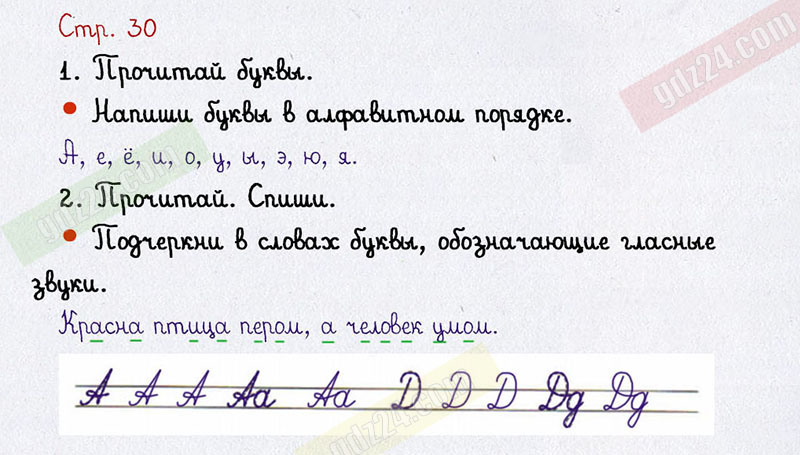 Стр. 30
1. Прочитай буквы.
• Напиши буквы в алфавитном порядке.
А, е, ё, и, о, у, ы, э, ю, я.
2. Прочитай. Спиши.
• Подчеркни в словах буквы, обозначающие гласные
звуки.
Красна птица пером, а человек умом.
А А А Аа Аа D D D Dд Dд
gdz24.com
gdz24.com
gdz24.com